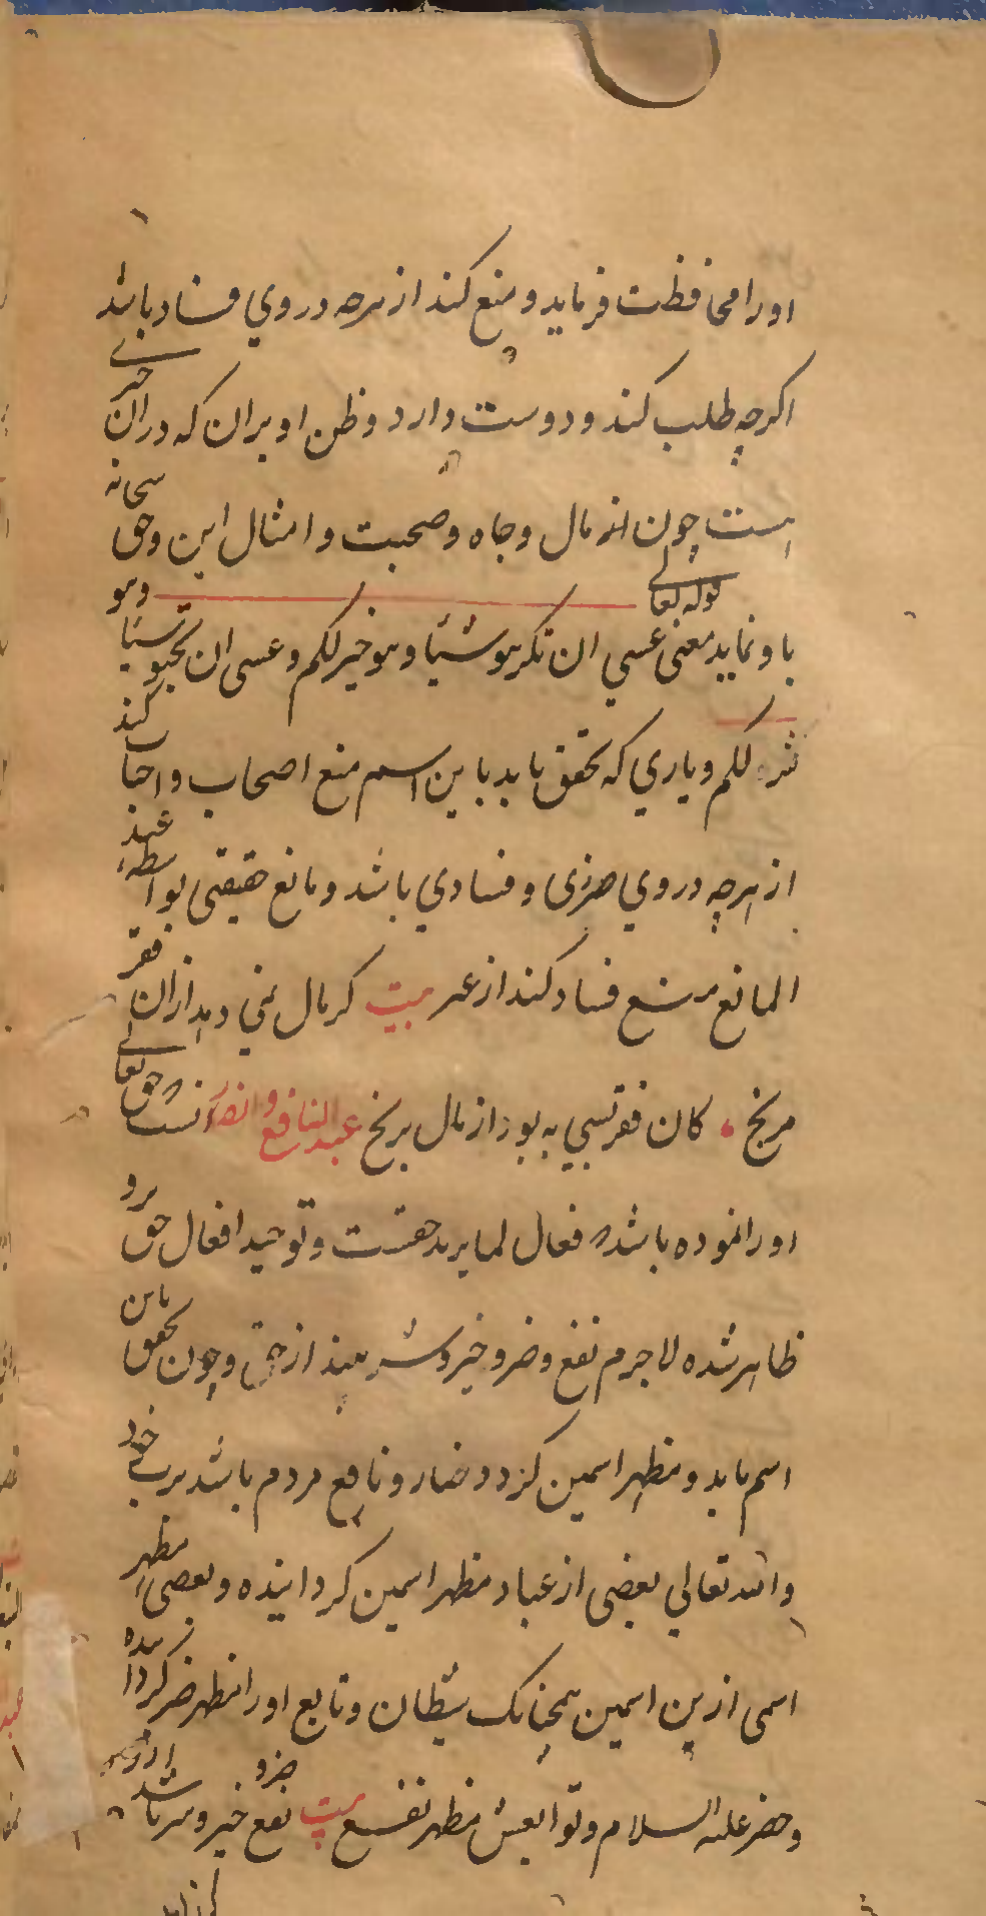 اورا محافظت فرماید و منع کند از هرچه در وي فساد باشد
اکرچه طلب کند و دوست دارد و ظن او بران که دران خیر
است چون از مال و جاه و صحبت و امثال این و حق سبحانه
باو نماید معنی قوله تعالی عسي ان تکرهو شیئا و هو خیر لکم و عسی ان تحبو شیئا و هو
شر لکم و یاري که تحقق یابد باین اسم منع اصحاب و احباب کند
از هرچه در وي ضرری و فسادي باشد و مانع حقیقی بواسطهٔ عبد
المانع منع فساد کند از غیر بیت کر مال نمي دهد ازان فقر
مرنج کان فقر بسي به بود از مال برنج عبد النافع و الضر انست که حق تعالی
اورا نموده باشد که فعال لما یرید حقست و توحید افعال حق برو
ظاهر شده لاجرم نفع و ضر و خیر و شر بیند از حق و چون تحقق باین
اسم یابد و مظهر اسمین کردد ضار و نافع مردم باشد برب خود
و الله تعالي بعضی از عباد مظهر اسمین کردانیده و بعضی مظهر
اسمی ازین اسمین همچنانک شیطان و تابع اورا مظهر ضر کردانیده
و خضر علیه السلام و توابعش مظهر نفع بیت نفع و ضر و خیر و شر باشد